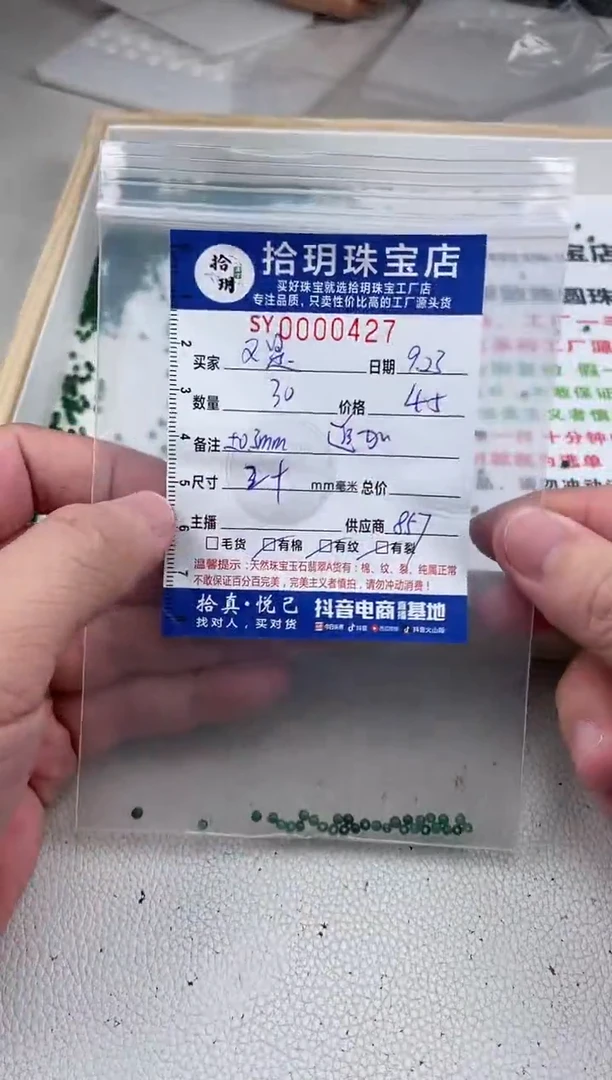 拾玥
拾玥珠宝店
买好珠宝就选拾玥珠宝工厂店
专注品质，只卖性价比高的工厂源头货
SY0000427
买家 日期 9.23
数量 30 价格 45
备注 ±0.3mm 追加
尺寸 3+ mm毫米 总价
主播 供应商 857
毛货 有棉 有纹 有裂
温馨提示：天然珠宝玉石翡翠A货有：棉、纹、裂，纯属正常
不敢保证百分百完美，完美主义者慎拍，请勿冲动消费！
拾真·悦己 抖音电商直播基地
找对人，买对货 今日头条 抖音 西瓜视频 抖音火山版
2
3
4
5
6
7
宝店
圆珠
工厂
工厂源
敢保证
义者慎
十分钟
为逃单
勿冲动